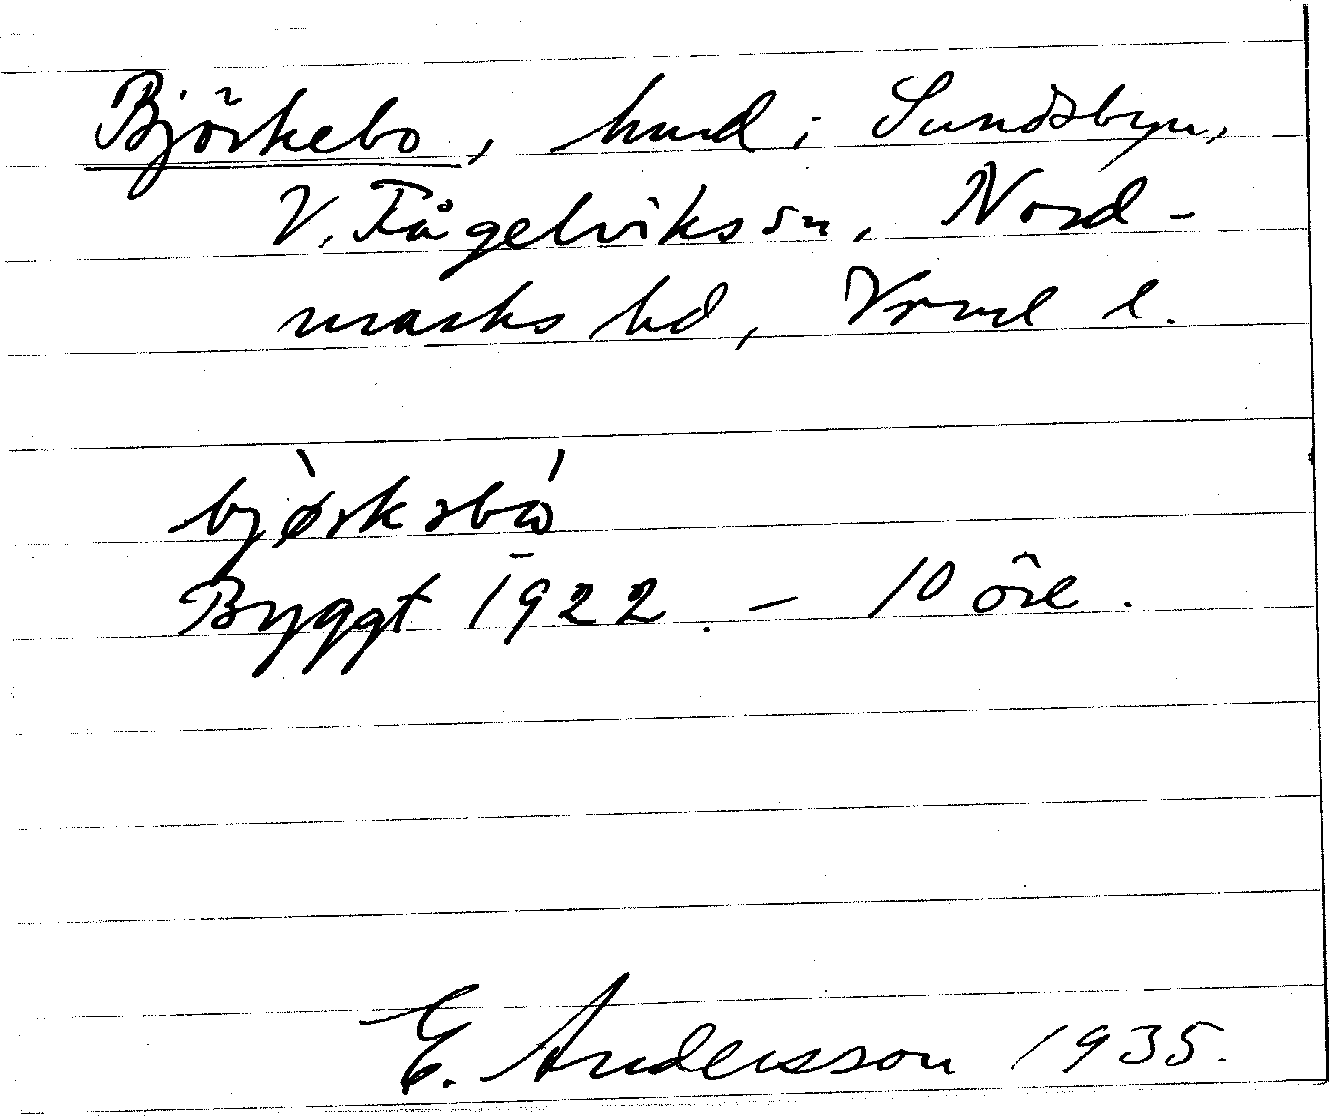 Björkebo, hmd i Sundsbyn,
V. Fågelviks sn, Nord-
marks hd, Vrml l.
bjø̀rkəbó
Byggt 1922. – 10 öre.
E. Andersson 1935.